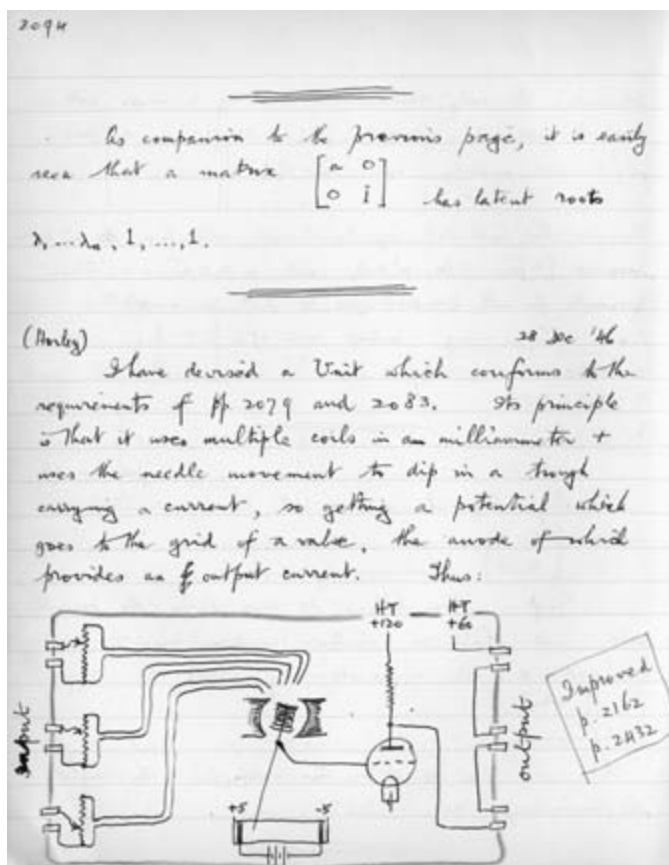 2094
As companion to the previous page, it is easily
seen that a matrix [a 0
0 I] has latent roots
λ, ... λn, 1, ..., 1.
28 Dec '46
I have devised a Unit which conforms to the
requirements of pp 2079 and 2083. Its principle
is that it uses multiple coils in a milliammeter +
uses the needle movement to dip in a trough
carrying a current, so getting a potential which
goes to the grid of a valve, the anode of which
provides an output current. Thus:
HT
+120
HT
+60
input
output
+5
-5
Improved
p. 2162
p. 2432